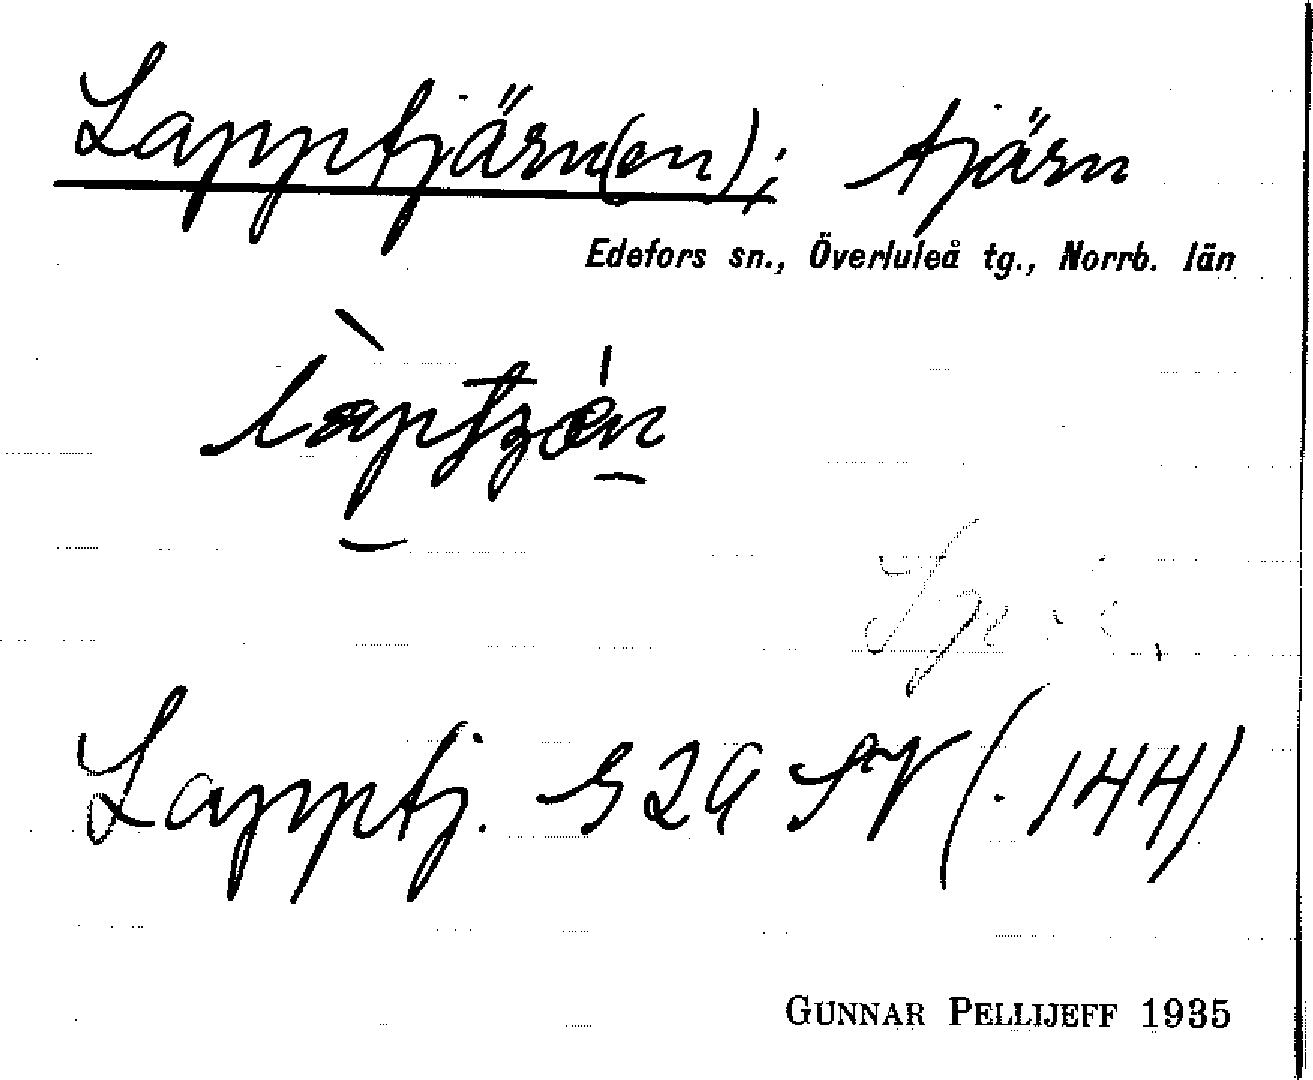 Lapptjärn(en); tjärn
Edefors sn., Överluleå tg., Norrb. län
Lapptj. S29 SV (. 144)
GUNNAR PELLIJEFF 1935